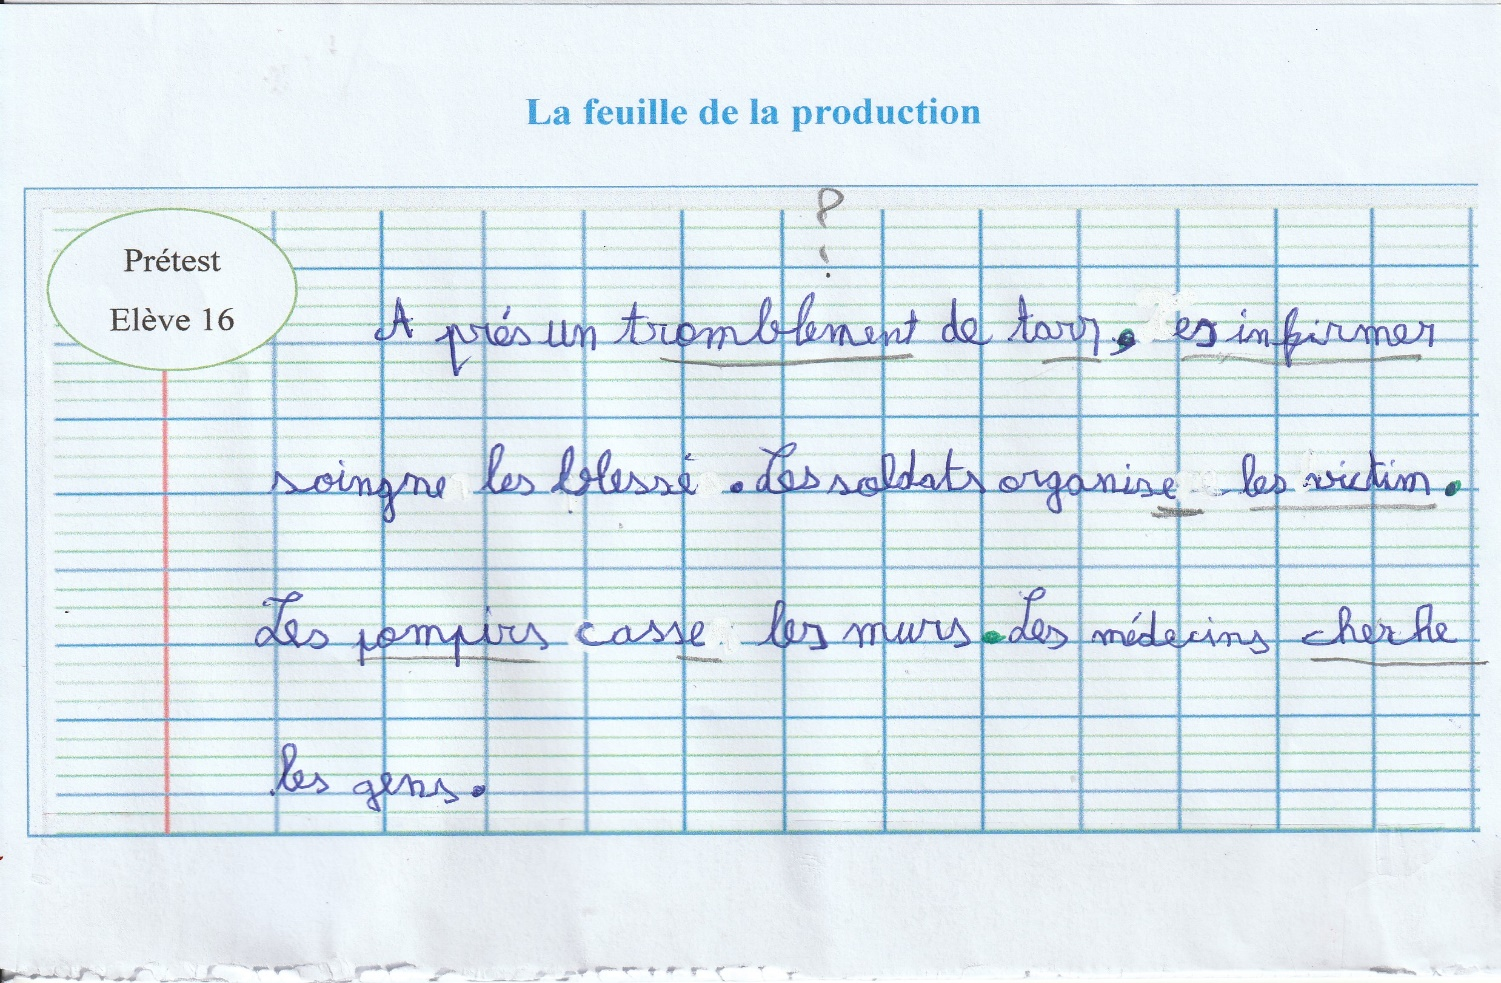 La feuille de la production
?
Prétest
Elève 16
A prés un tromblement de tarr, es infirmer
soingne les blessé. Les soldats organise les victim.
Les pompirs casse les murs. Les médecins cherhe
les gens.